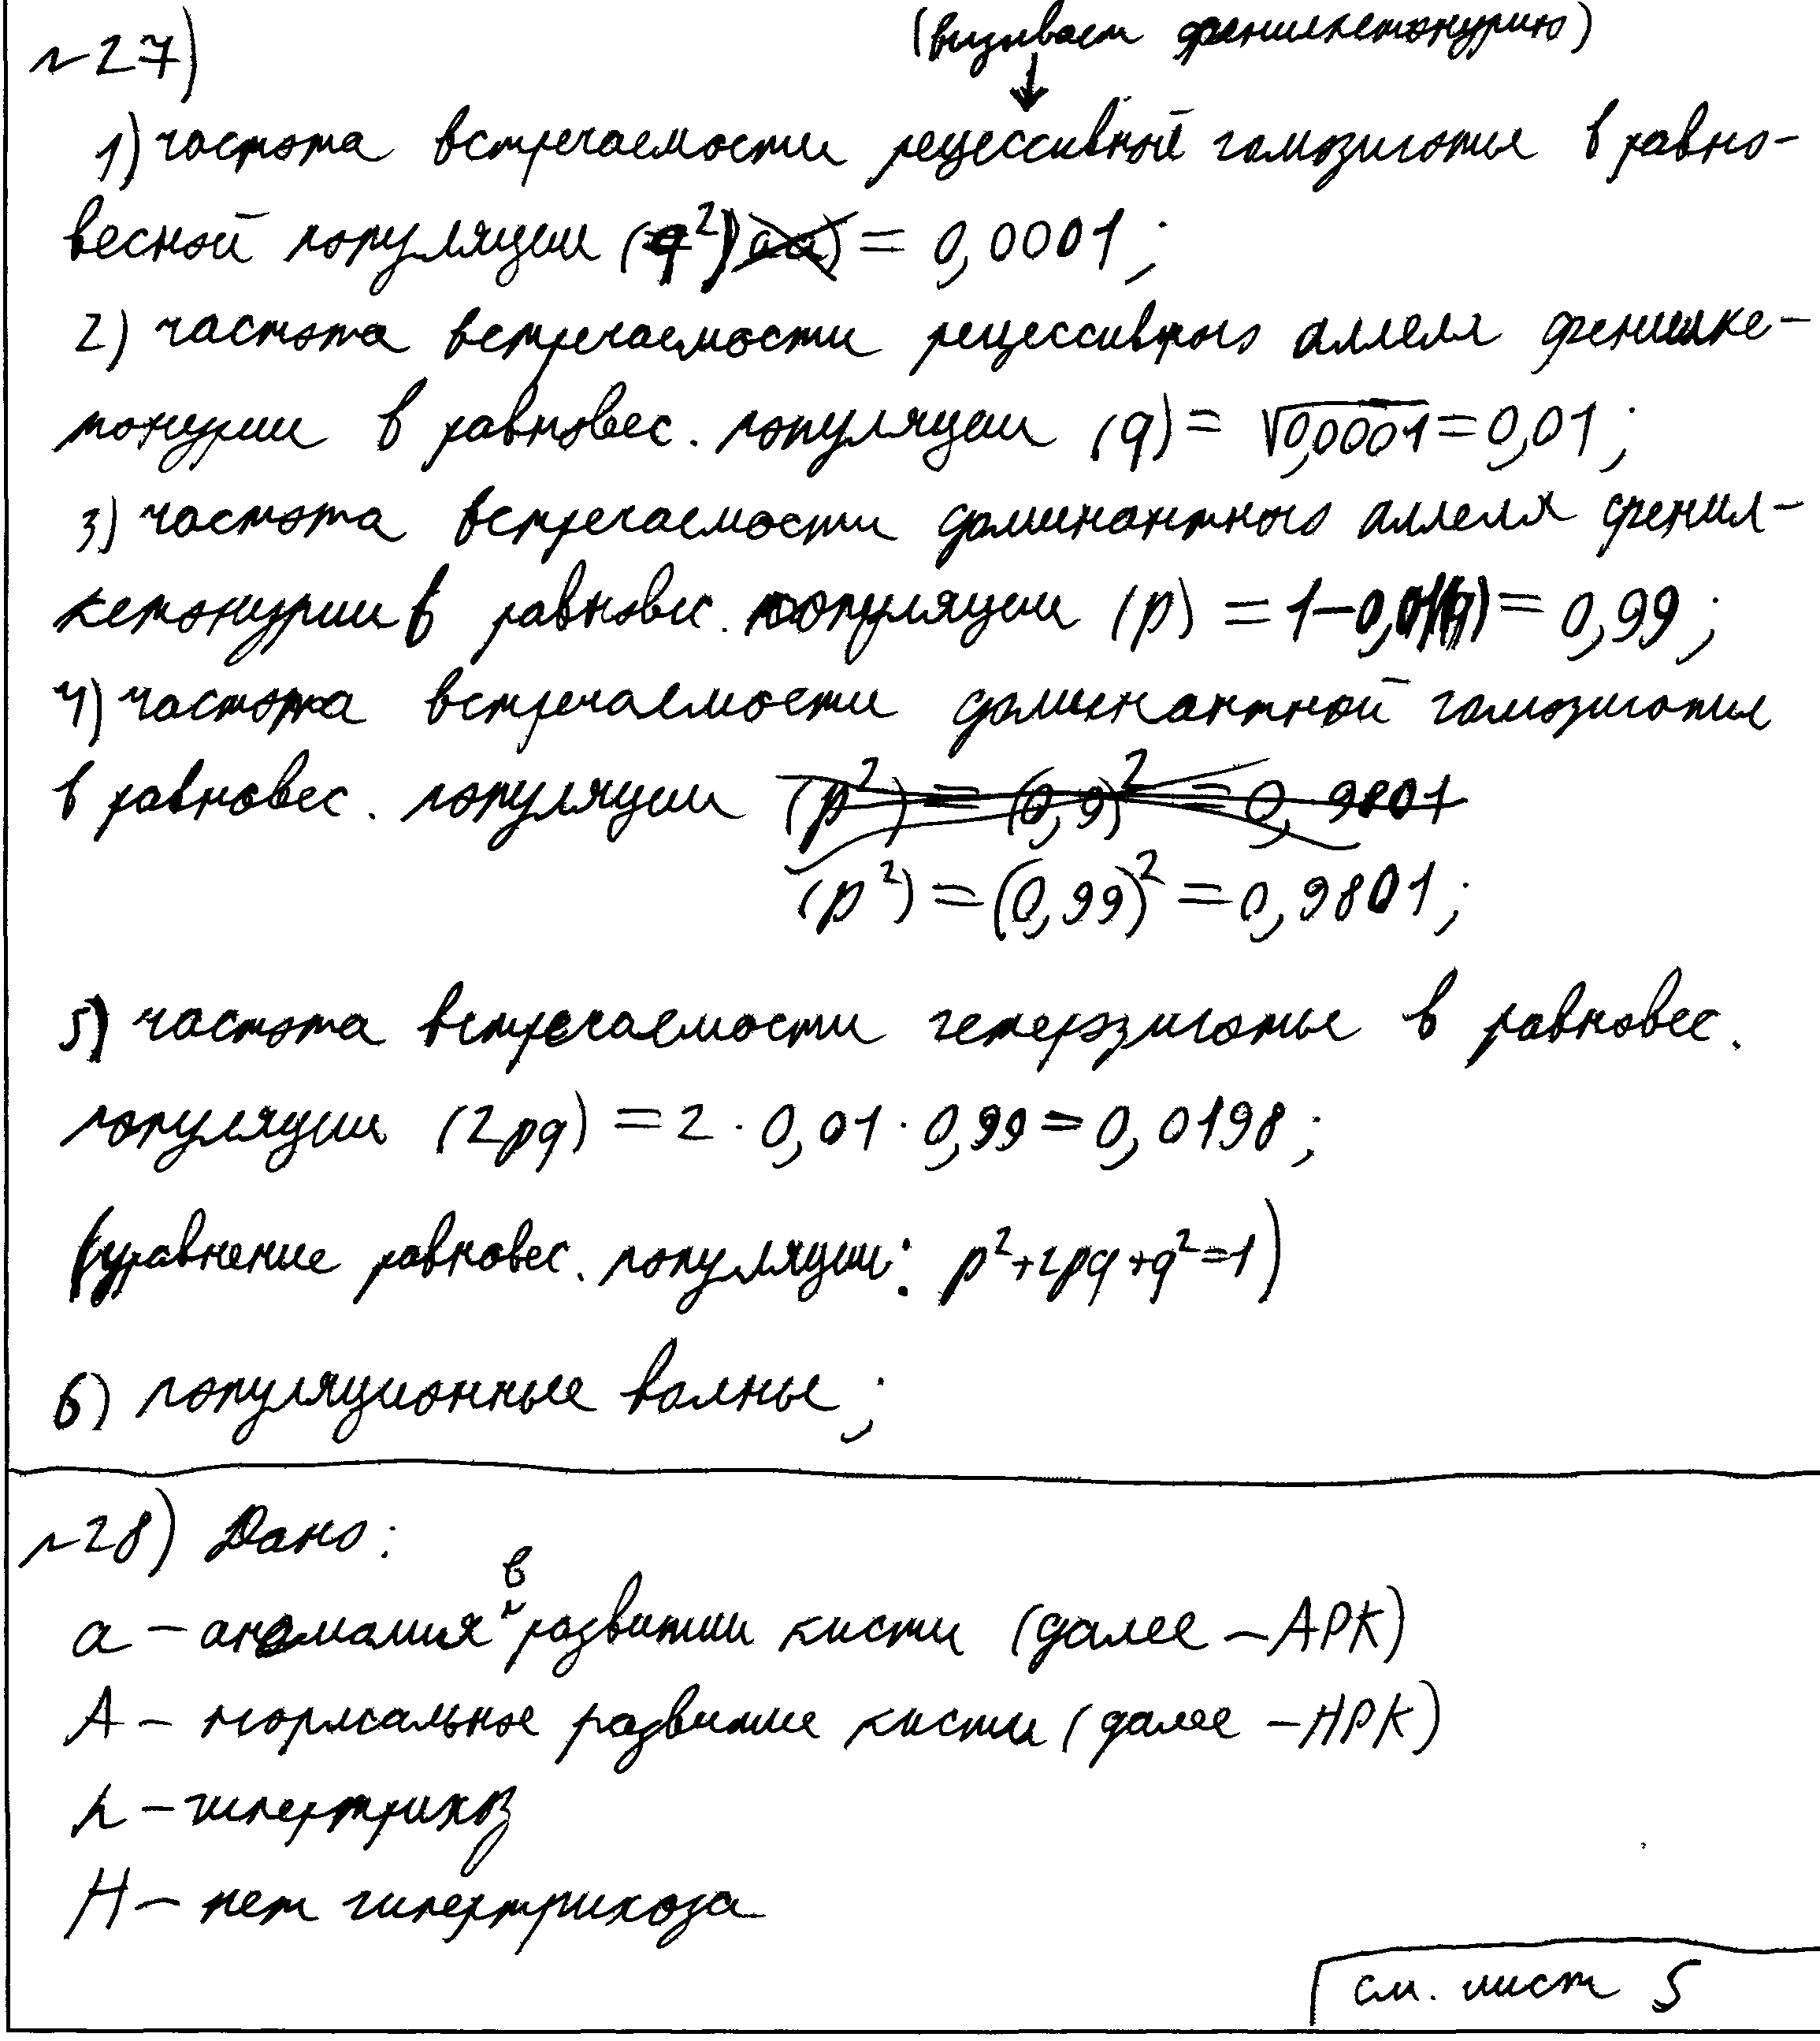 (вызывает фенилкетонурию)
№27)
1) частота встречаемости рецессивной гомозиготы в равно-
весной популяции (q²) = 0,0001;
2) частота встречаемости рецессивного аллеля фенилке-
тонурии в равновес. популяции (q) = √0,0001 = 0,01;
3) частота встречаемости доминантного аллеля фенил-
кетонурии в равновес. популяции (p) = 1-0,01 = 0,99;
4) частота встречаемости доминантной гомозиготы
в равновес. популяции (p²) = (0,9)² = 0,9801
(p²) = (0,99)² = 0,9801;
5) частота встречаемости гетерозиготы в равновес.
популяции (2pq) = 2 · 0,01 · 0,99 = 0,0198;
(уравнение равновес. популяции: p²+2pq+q²=1)
6) популяционные волны;
№28) Дано:
a – аномалия в развитии кисти (далее – АРК)
A – нормальное развитие кисти (далее – НРК)
h – гипертрихоз
H – нет гипертрихоза
см. лист 5